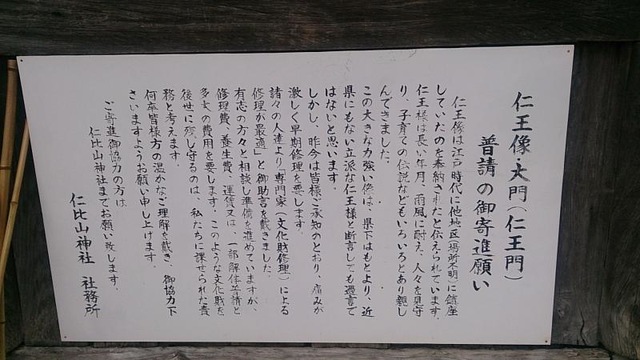 仁王像・大門(仁王門)
普請の御寄進願い
仁王像は江戸時代に他地区(場所不明)に鎮座
していたのを奉納されたと伝えられています。
仁王様は長い年月、雨風に耐え、人々を見守
り、子育ての伝説などもいろいろとあり親し
んできました。
この大きな力強い像は、県下はもとより、近
県にもない立派な仁王様と断言しても過言で
はないと思います。
しかし、昨今は皆様ご承知のとおり、痛みが
激しく早期修理を要します。
諸々の人達より「専門家(文化財修理)による
修理が最適」と御助言を戴きました。
有志の方々と相談し準備を進めていますが、
修理費、養生費、運賃又は、一部解体普請と
多大の費用を要します。このような文化財を
後世に残し守るのは、私たちに課せられた責
務と考えます。
何卒皆様方の温かなご理解を戴き、御協力下
さいますようお願い申し上げます。
ご寄進御協力の方は
仁比山神社までお願い致します。
仁比山神社 社務所